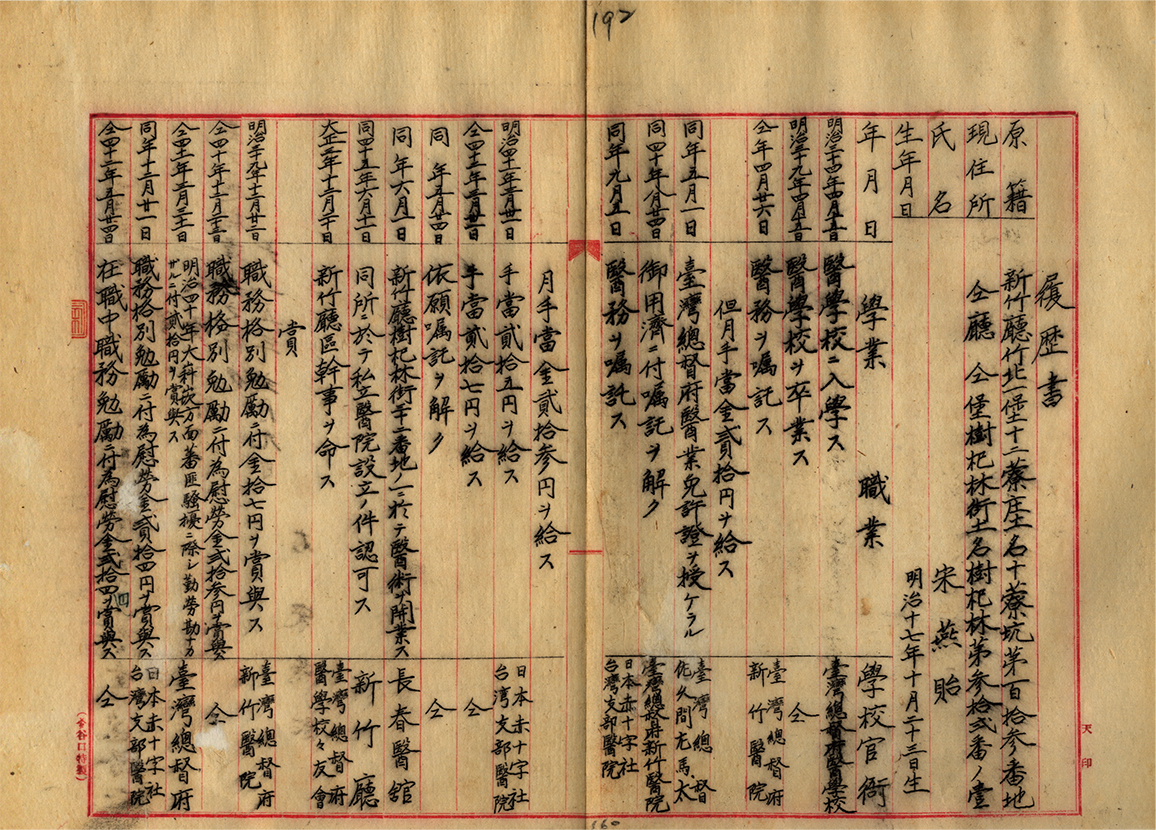 192
履歴書
原籍 新竹廳竹北一堡十二藔庄土名十藔坑第百拾参番地
現住所 仝廳仝堡樹杞林街土名樹杞林第参拾弐番ノ壹
氏名 宋燕貽
生年月日 明治十七年十月二十三日生
年月日 學業 職業 學校官衙
明治三十四年四月十五日 醫學校ニ入學ス 臺灣總督府醫學校
明治三十九年四月十五日 醫學校ヲ卒業ス 仝
仝年四月廿六日 醫務ヲ嘱託ス 臺灣總督府新竹醫院
但月手當金貳拾円ヲ給ス
同年五月一日 臺灣總督府醫業免許證ヲ授ケラル 臺灣總督佐久間左馬太
同四十年八月廿四日 御用濟ニ付嘱託ヲ解ク 臺灣總督府新竹醫院
同年九月五日 醫務ヲ嘱託ス 日本赤十字社台湾支部醫院
月手當金貳拾参円ヲ給ス
明治四十一年三月廿一日 手當貳拾五円ヲ給ス 日本赤十字社台湾支部醫院
仝四十二年三月廿五日 手當貳拾七円ヲ給ス 仝
同年五月廿四日 依願嘱託ヲ解ク 仝
同年六月一日 新竹廳樹杞林街卅二番地ノ一ニ於テ醫術ヲ開業ス 長春醫舘
同四十五年六月十一日 同所於テ私立醫院設立ノ件認可ス 新竹廳
大正二年十二月二十日 新竹廳區幹事ヲ命ス 臺灣總督府醫學校々友會
賞
明治三十九年十二月廿二日 職務格別勉勵ニ付金拾七円ヲ賞與ス 臺灣總督府新竹醫院
仝四十年十二月二十三日 職務格別勉勵ニ付為慰勞金弐拾参円ヲ賞與ス 仝
仝四十一年三月三十一日 明治四十年大科崁方面蕃匪騒擾ニ際シ勤勞勘ナカラサルニ付貳拾円ヲ賞與ス 臺灣總督府
同年十二月廿一日 職務格別勉勵ニ付為慰勞金貳拾四円ヲ賞與ス 日本赤十字社台湾支部醫院
仝四十二年五月廿四日 在職中職務勉勵ニ付為慰勞金弐拾四円ヲ賞與ス 仝
天印
160